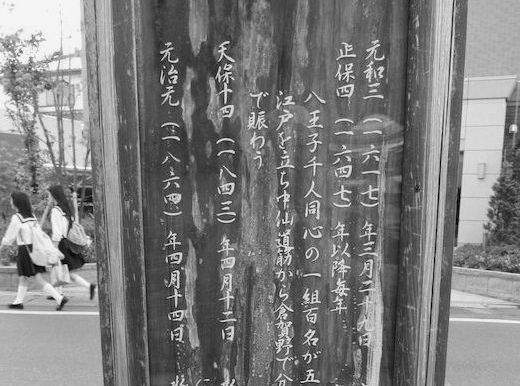 元和三(一六一七)年三月二十九日
正保四(一六四七)年以降毎年
八王子千人同心の一組百名が五
江戸を立ち中仙道筋から倉賀野で
で賑わう
天保十四(一八四三)年四月十二日
元治元(一八六四)年四月十四日